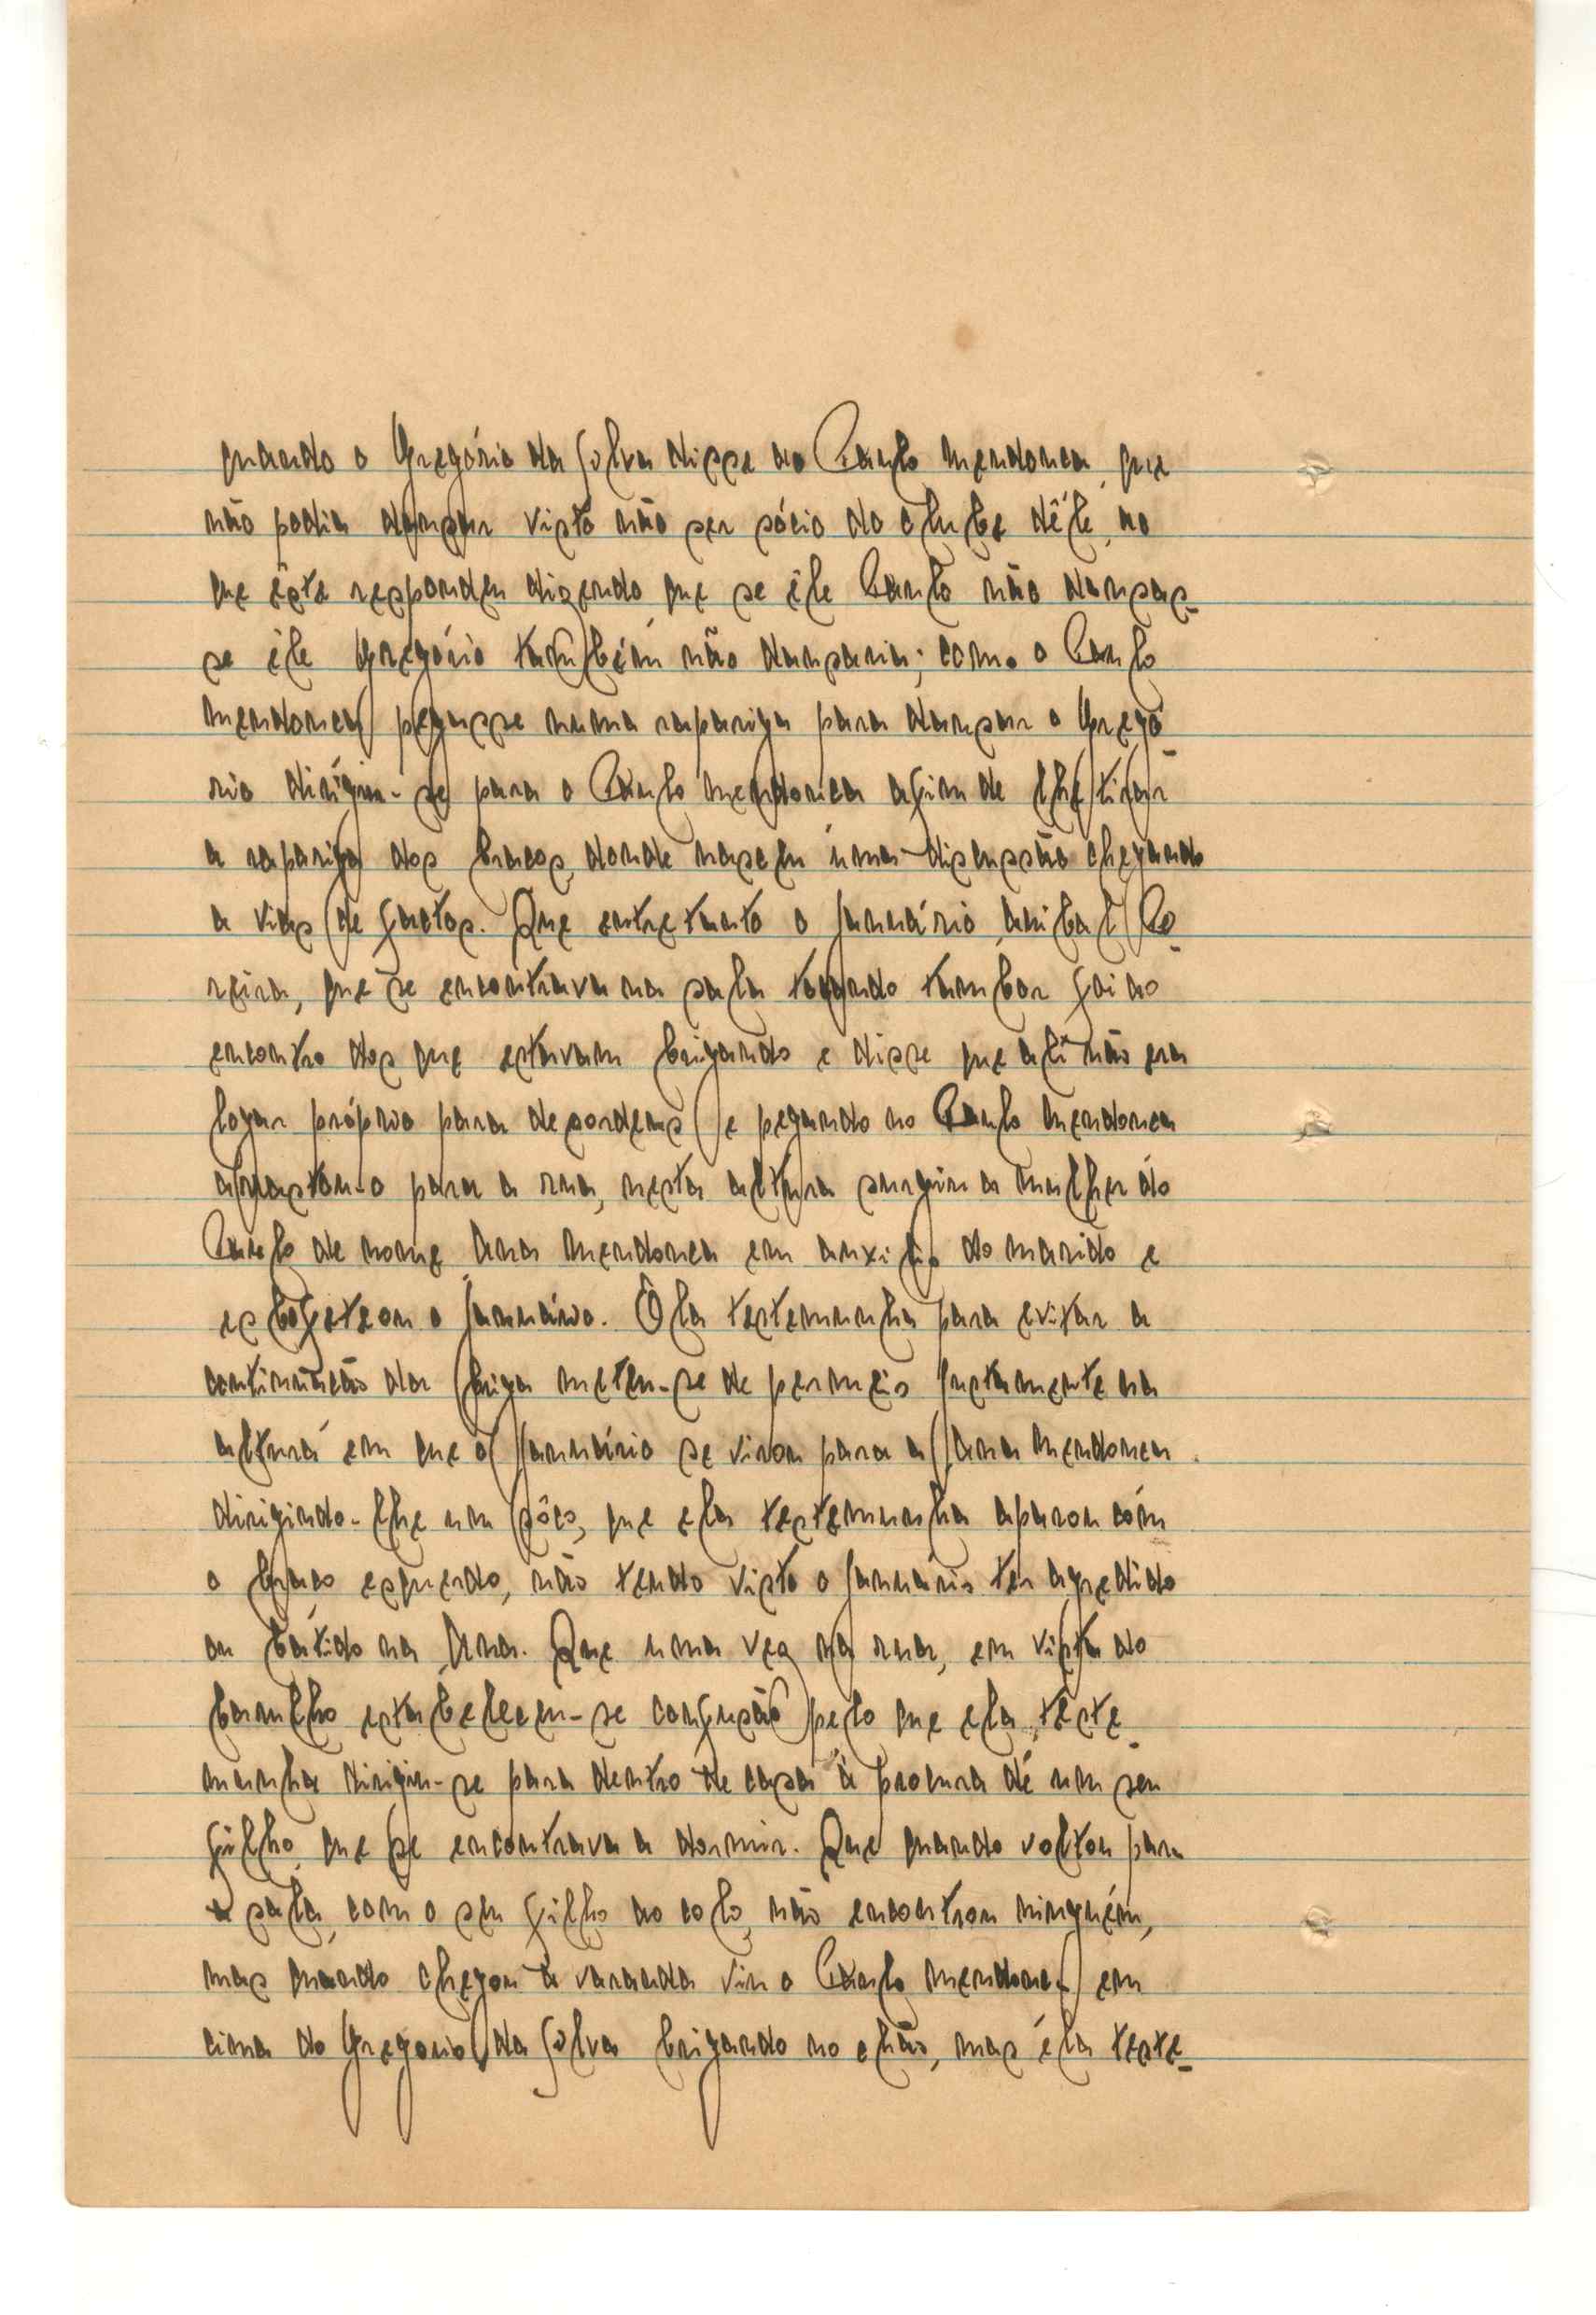 quando o Gregório da Silva disse ao Paulo Mendonca, que
não podia dansar visto não ser sócio do clube dêle, ao
que êste respondeu dizendo que se êle Paulo não dansas-
se êle Gregório também não dansaria; como o Paulo
Mendonca pegasse numa rapariga para dansar o Gregó-
rio dirigiu-se para o Paulo Mendonca afim de lhe tirar
a rapariga dos bracos, donde nasceu uma discussão chegando
a vias de factos. Que entretanto o Januário Anibal Pe-
reira, que se encontrava na sala tocando tambor foi ao
encontro dos que estavam brigando e disse que ali não era
logar próprio para desordens e pegando no Paulo Mendonca
afrastou-o para a rua, nesta altura surgiu a mulher do
Paulo de nome Ana Mendonca em auxilio do marido e
esbofeteou o Januário. Ela testemunha para evitar a
continuacão da briga meteu-se de permeio justamente na
altura em que o Januário se virou para a Ana Mendonca
dirigindo-lhe um sôco, que ela testemunha aparou com
o braco esquerdo, não tendo visto o Januário ter agredido
ou batido na Ana. Que uma vez na rua, em vista do
barulho estabeleceu-se confusão pelo que ela, teste-
munha dirigiu-se para dentro de casa à procura de um seu
filho, que se encontrava a dormir. Que quando voltou para
a sala, com o seu filho ao colo, não encontrou ninguém,
mas quando chegou à varanda viu o Paulo Mendonca em
cima do Gregorio da Silva brigando no chão, mas ela teste-